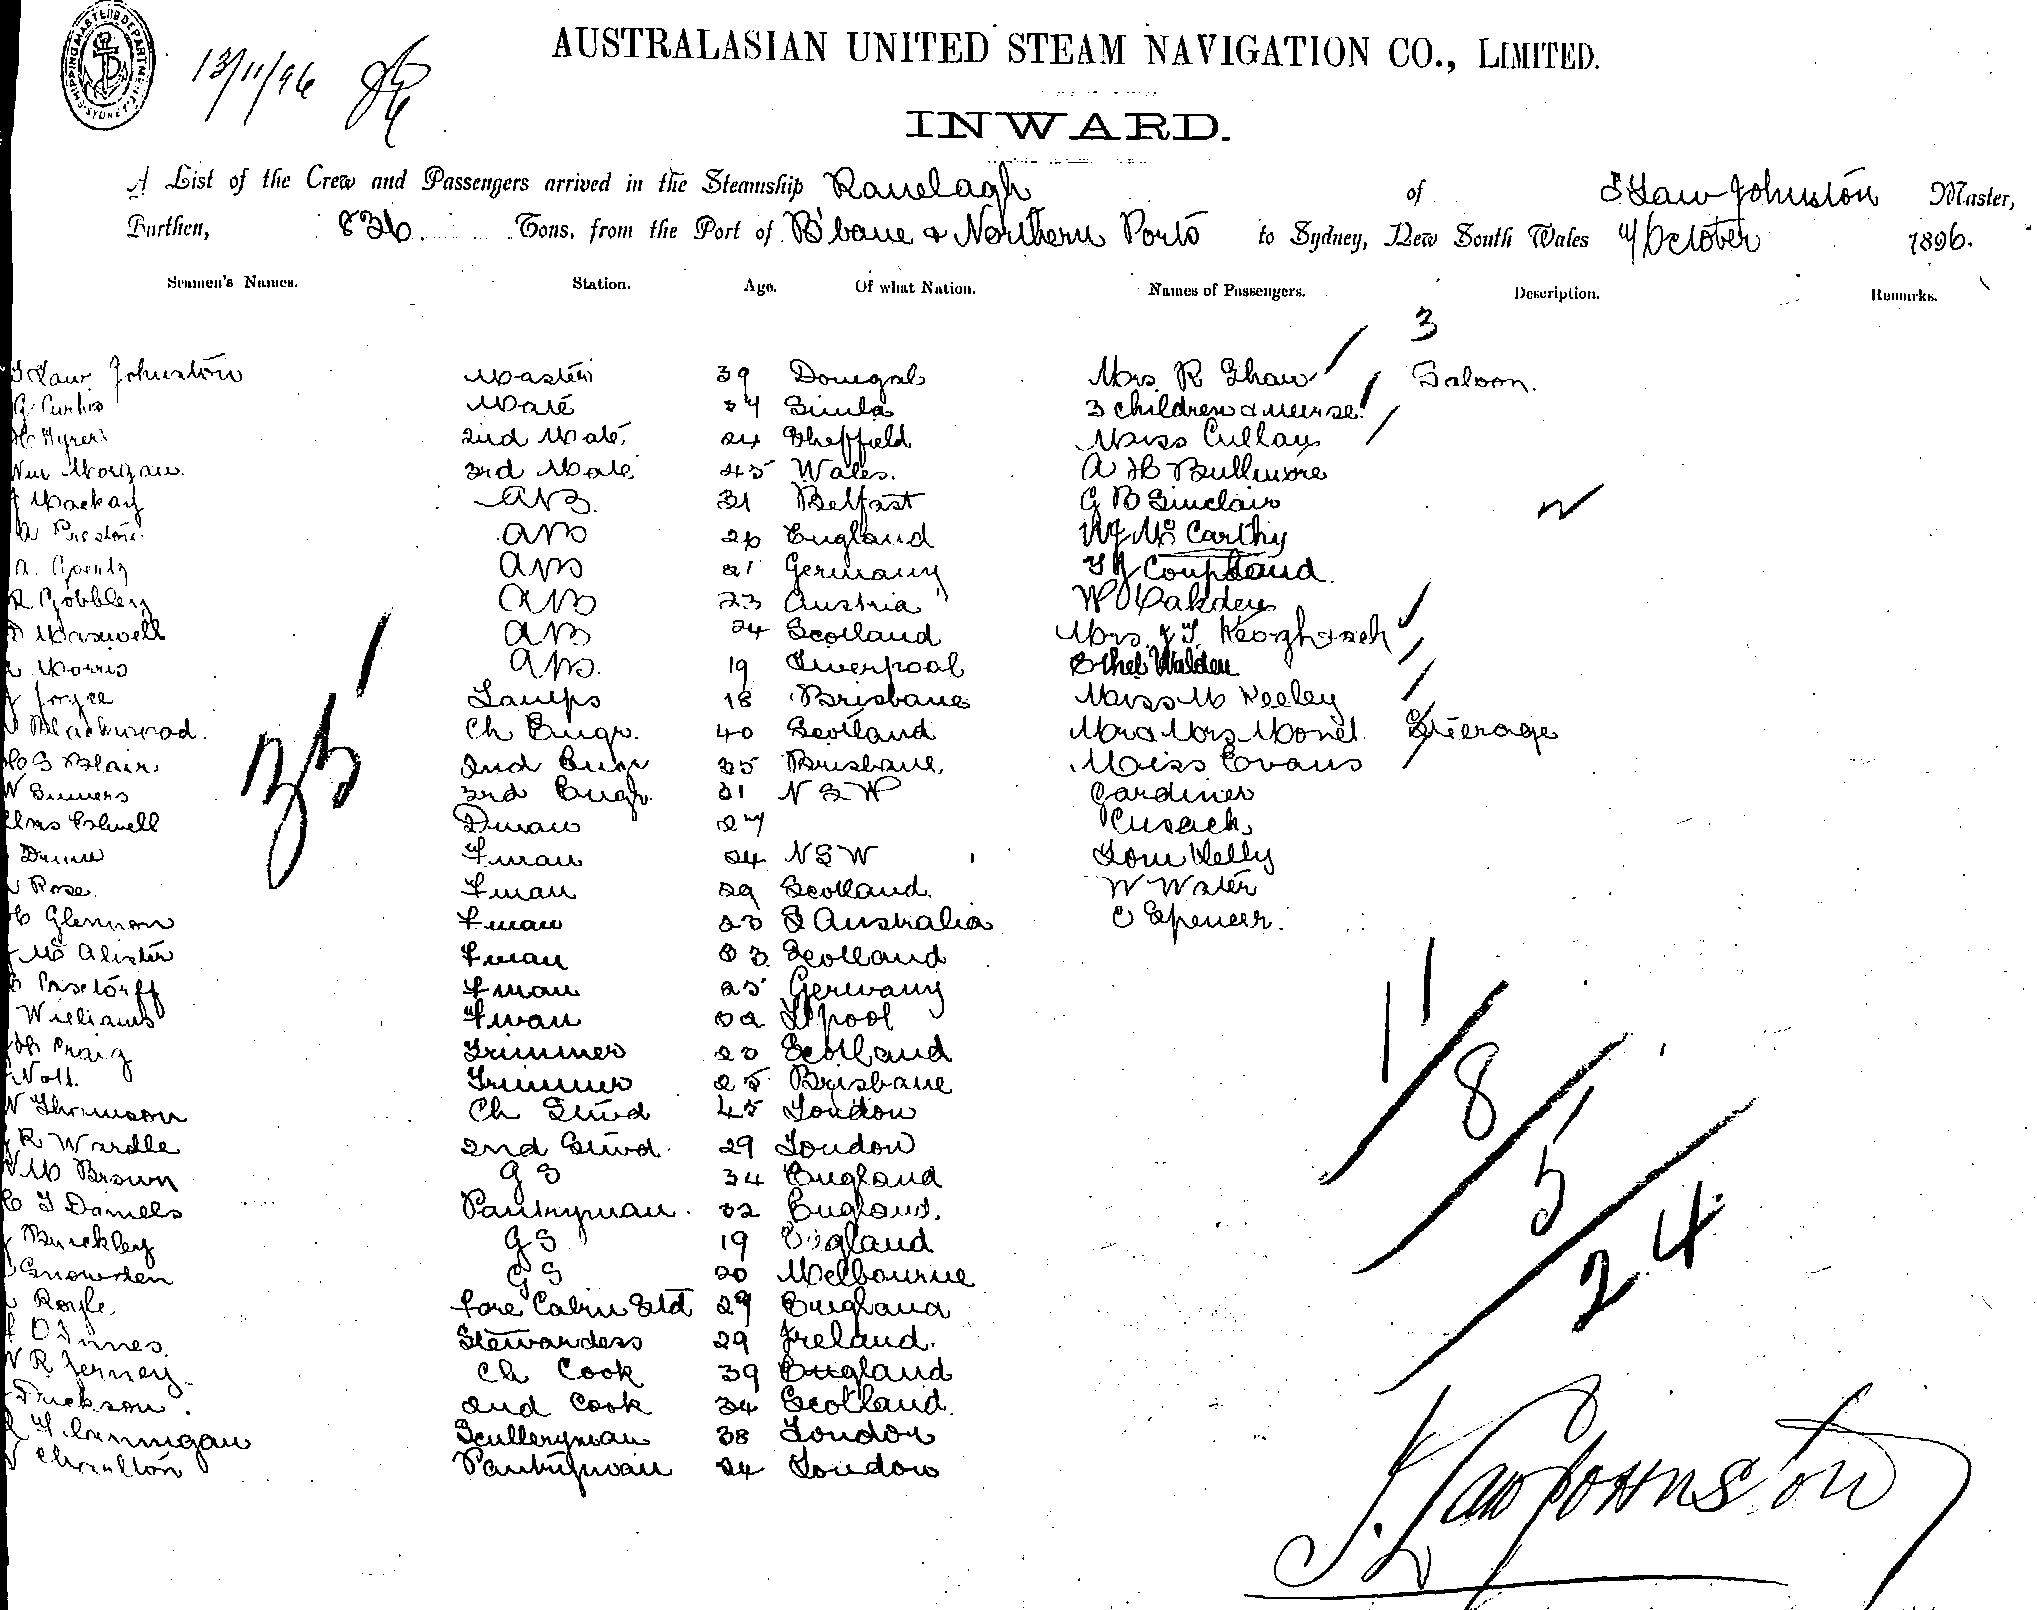 SHIPPING MASTERS DEPARTMENT SYDNEY
13/11/96
AUSTRALASIAN UNITED STEAM NAVIGATION CO., LIMITED.
INWARD.
A List of the Crew and Passengers arrived in the Steamship Ranelagh of S Law Johnston Master,
Burthen, 836 Tons, from the Port of B'bane & Northern Ports to Sydney, New South Wales 11/October 1896.
Seamen's Names. Station. Age. Of what Nation. Names of Passengers. Description. Remarks.
3
Law Johnston Master 39 Donegal Mrs. R Shaw Saloon.
Curtis Mate Simla 3 children & nurse
Ayres 2nd Mate 24 Sheffield Miss Cullay
Wm Morgan 3rd Mate 45 Wales. A H Bullmore
Mackay AB. 31 Belfast G B Sinclair
Preston AB 26 England McCarthy
A. AB 21 Germany Coupland
R AB 23 Austria W Oakden
Maxwell AB 24 Scotland Mrs. J T. Keogh & ch
Morris AB. 19 Liverpool Ethel Walden
Joyce Lamps 18 Brisbane Miss M Keeley
Blackwood. Ch Engr. 40 Scotland Mr & Mrs Monet Steerage
35
Blair 2nd Engr 35 Brisbane. Miss Evans
W Summers 3rd Engr. 31 N S W Gardiner
Colwell Dman 27 Cusack
Dunne Fman 24 N S W Tom Kelly
Rose. Fman 29 Scotland. W Water
Glennon Fman 23 S Australia C Spencer.
McAlister Fman 33 Scotland
Pasdorff Fman 25 Germany
Williams Fman L'pool
Craig Trimmer 23 Scotland
Nott. Trimmer 25 Brisbane
W Thomson Ch Stwd 45 London
R Wardle 2nd Stwd. 29 London
M Brown G S 34 England
C J Daniels Pantryman. 32 England.
Buckley G S 19 England
Snowden G S 20 Melbourne
Royle Fore Cabin Std 29 England
O'Innes. Stewardess 29 Ireland.
W R Ch Cook 39 England
2nd Cook 34 Scotland.
Sculleryman 38 London
Charlton Pantryman 24 London
11
8
5
24
J. Law Johnston